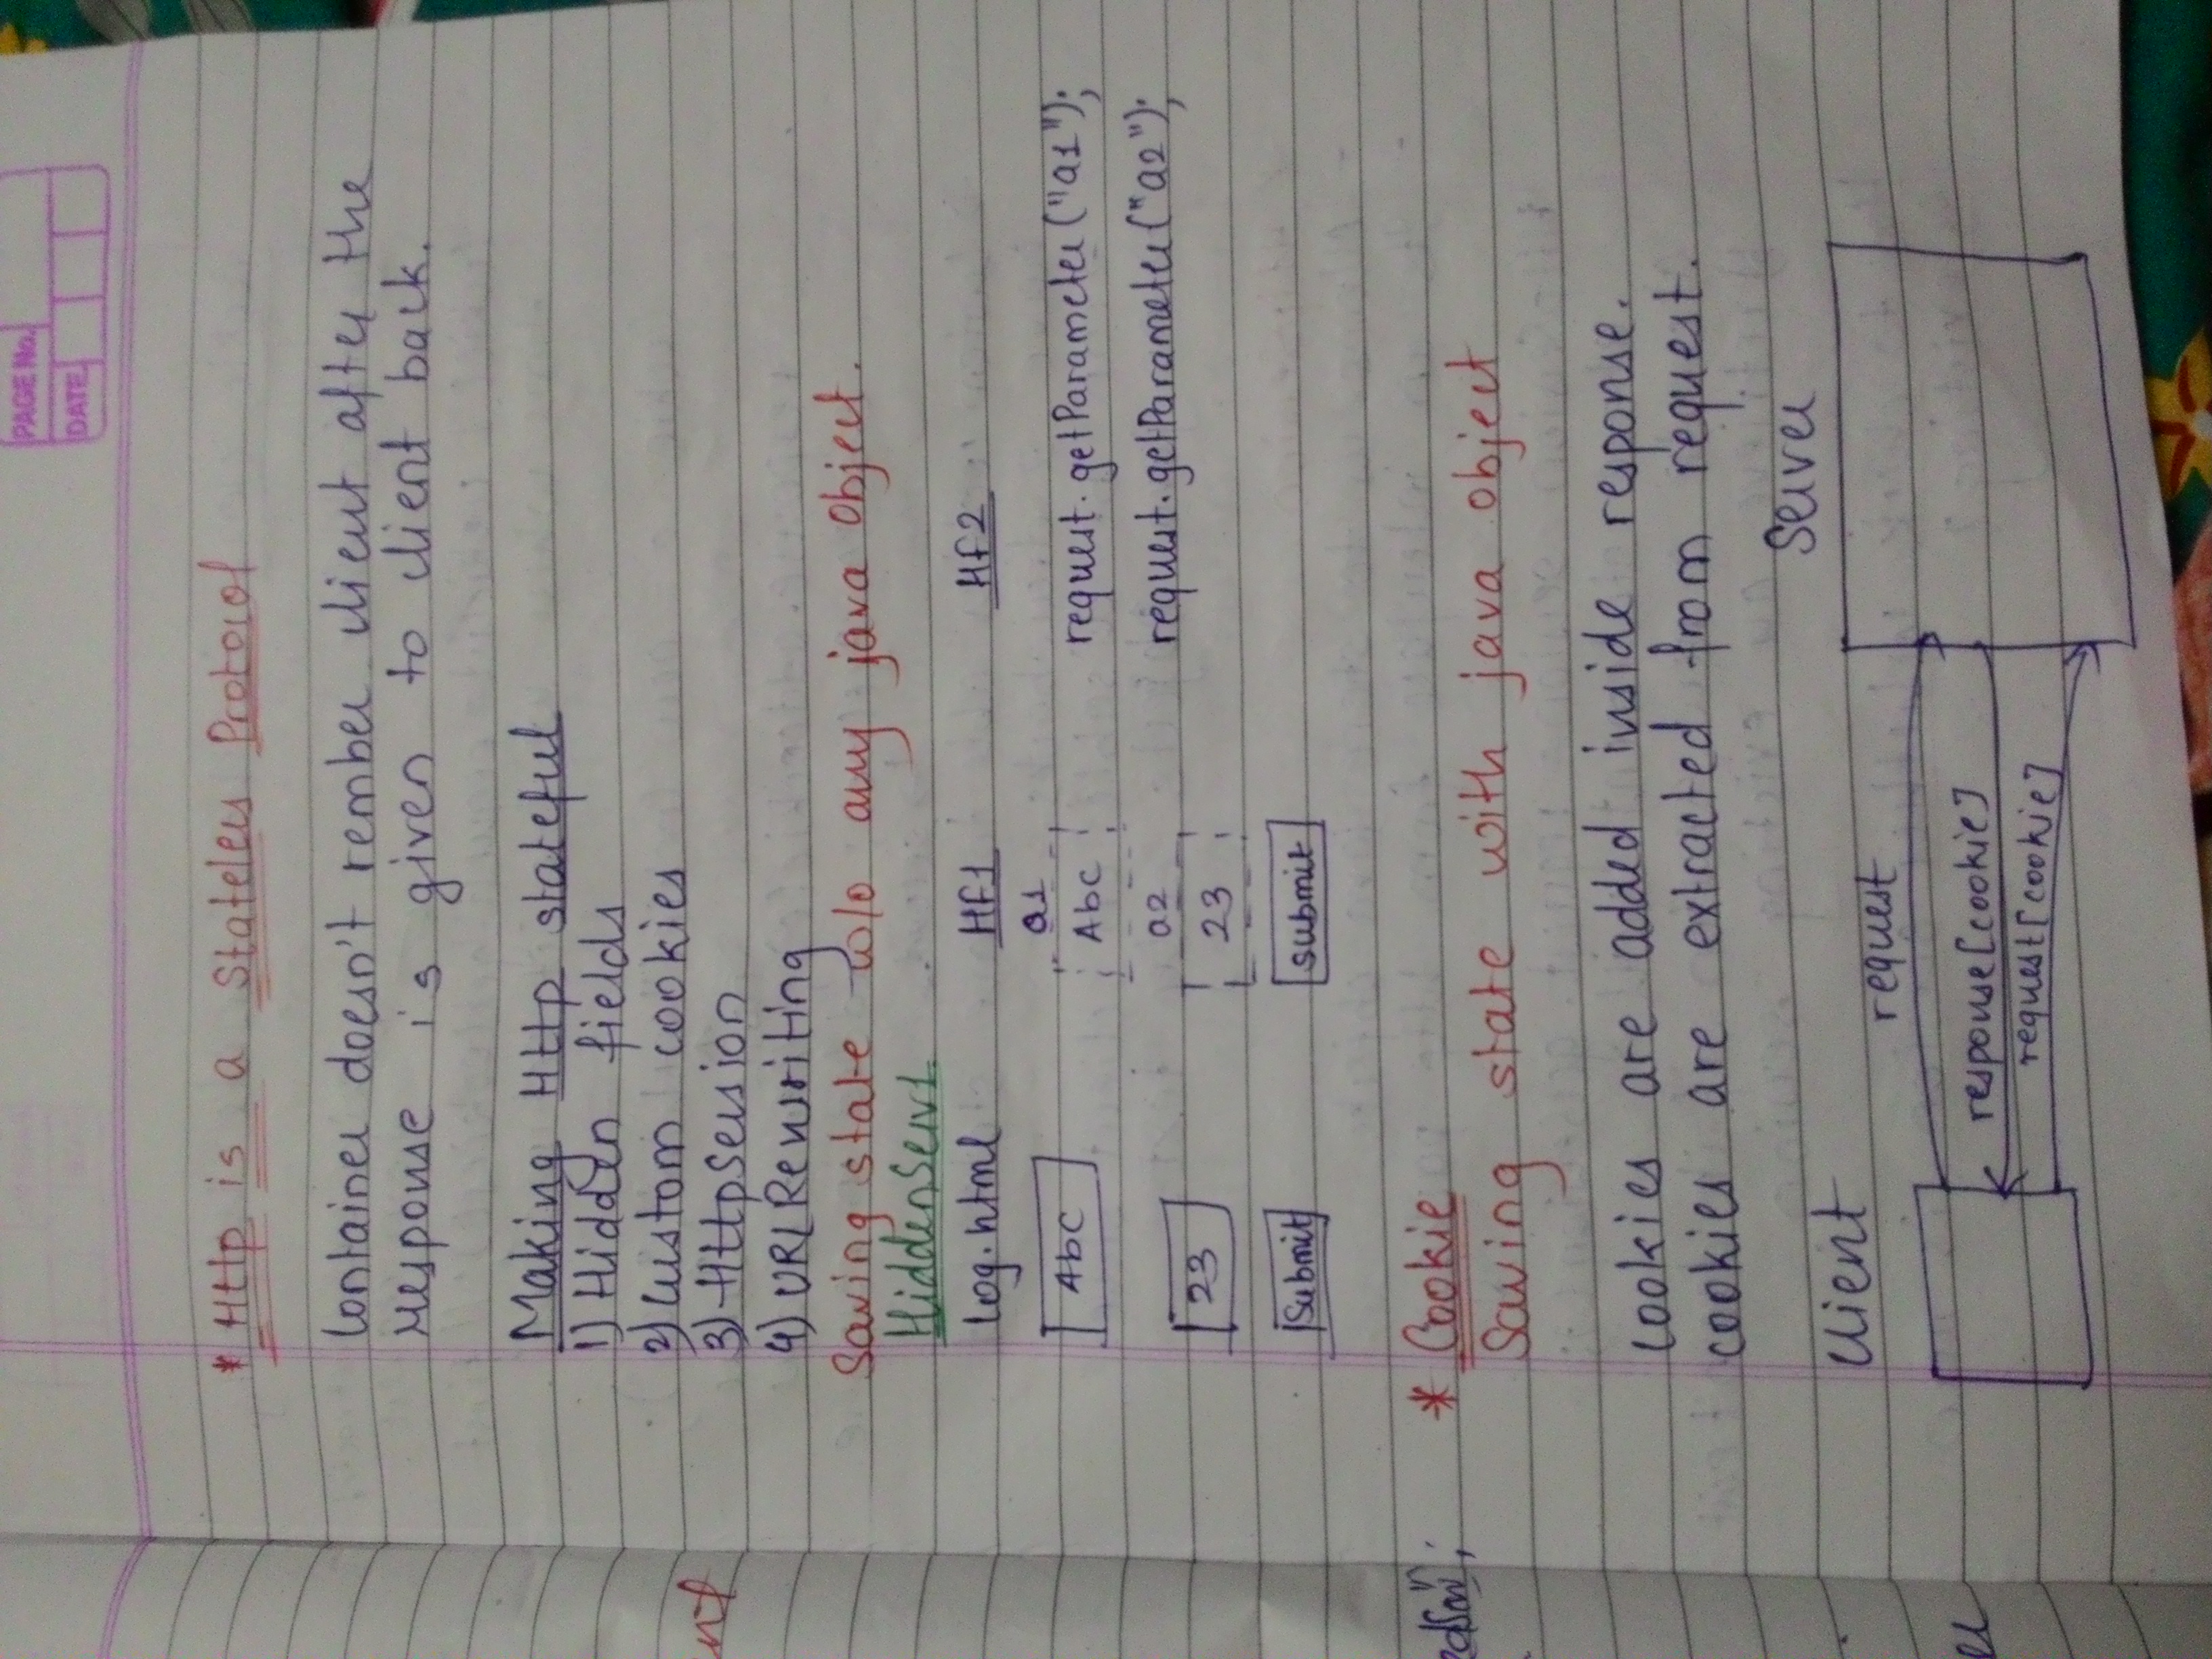 PAGE No.
DATE
* Http is a Stateless Protocol
Container doesn't rember client after the
response is given to client back.
Making Http stateful
1) Hidden fields
2) Custom cookies
3) HttpSession
4) URL Rewriting
Saving state w/o any java Object.
HiddenServ1
log.html HF1 HF2
a1
Abc Abc request.getParameter("a1");
a2 request.getParameter("a2");
23 23
Submit submit
* Cookie
Saving state with java object
cookies are added inside response.
cookies are extracted from request.
Server
Client
request
response[cookie]
request[cookie]